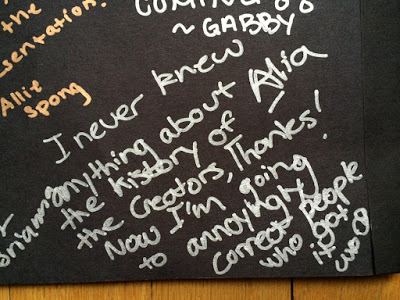 the
sentation!
Allie
spong
COMING
~ GABBY
I never knew
anything about Alia
the history of
the Creators, Thanks!
Now I'm going
to annoyingly
correct people
who got
it